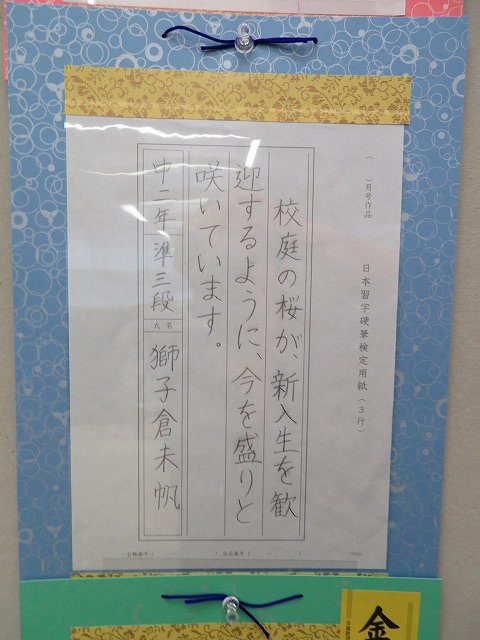 ( )月号作品
日本習字硬筆検定用紙(3行)
校庭の桜が、新入生を歓
迎するように、今を盛りと
咲いています。
中二年 準三段 氏名 獅子倉未帆
金